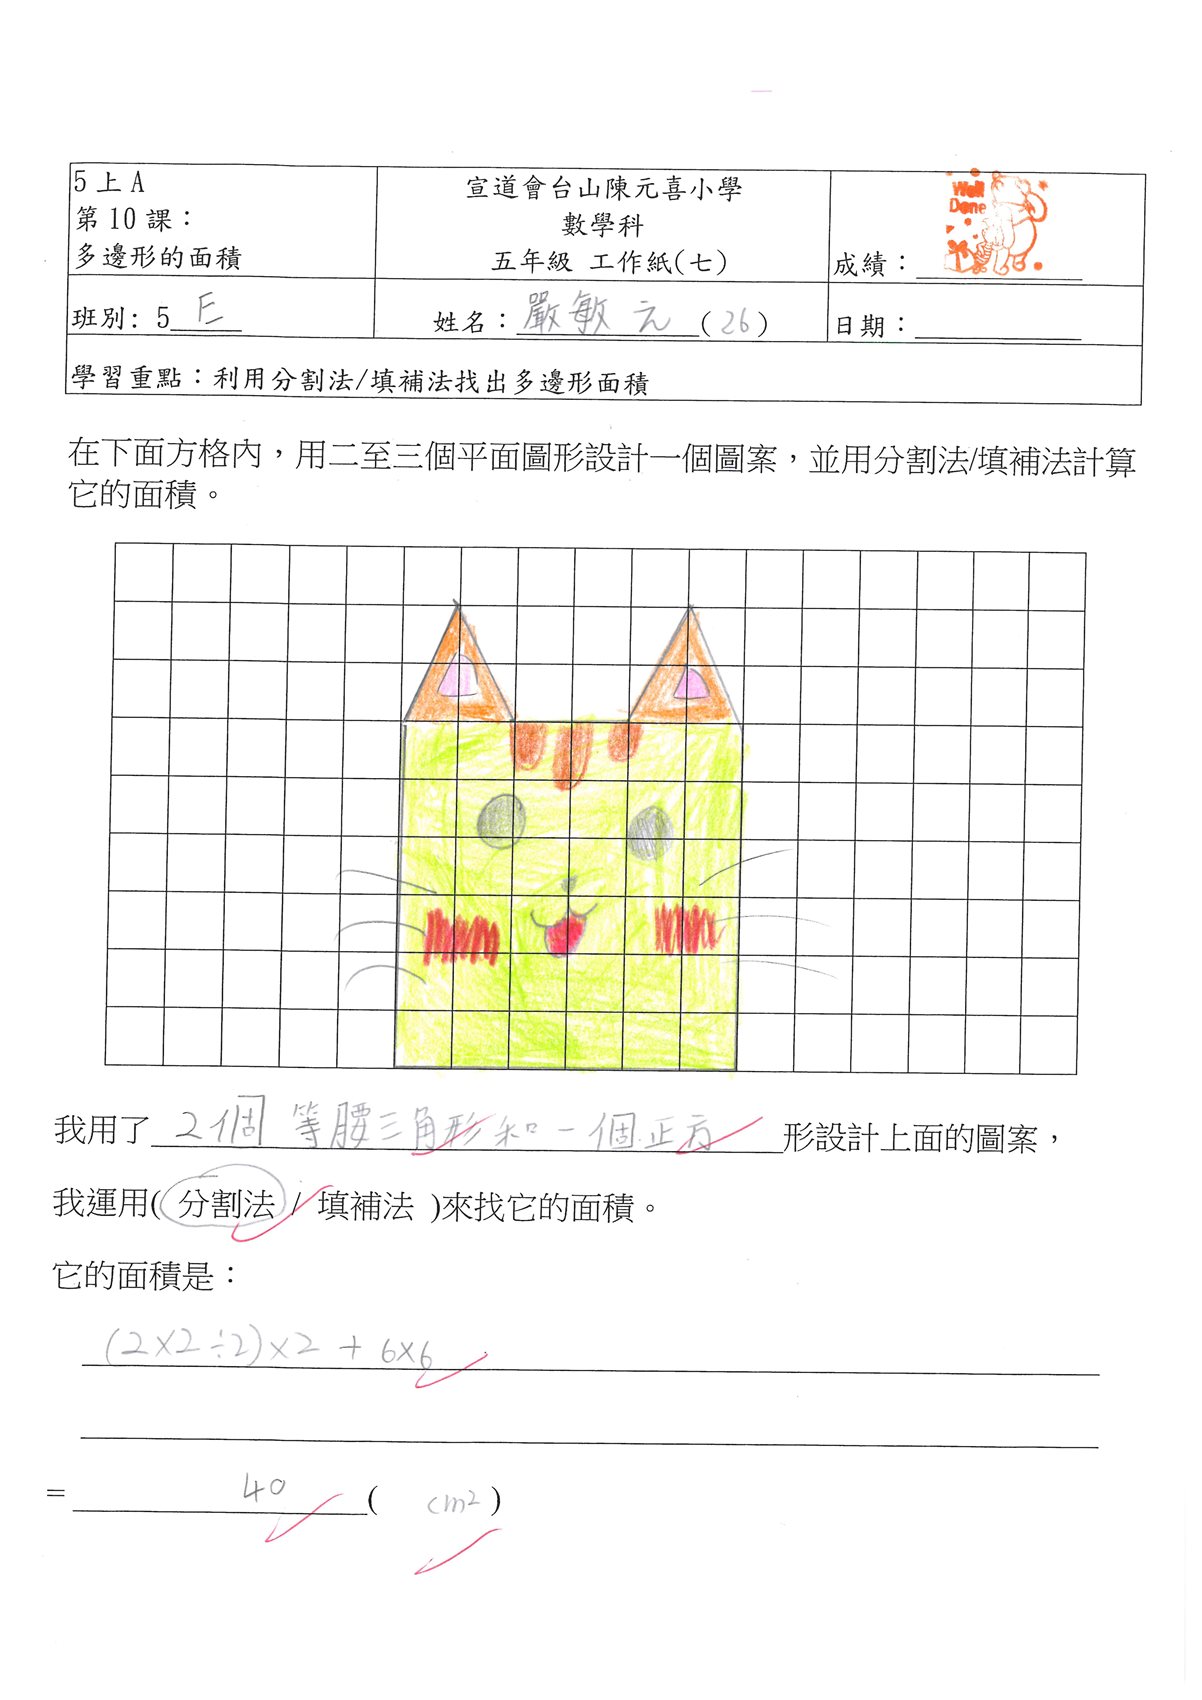 5上A
第10課：
多邊形的面積
宣道會台山陳元喜小學
數學科
五年級 工作紙(七)
Well
Done
成績：
班別: 5 E
姓名：嚴敏元(26)
日期：
學習重點：利用分割法/填補法找出多邊形面積
在下面方格內，用二至三個平面圖形設計一個圖案，並用分割法/填補法計算
它的面積。
我用了2個 等腰三角形和一個正方形設計上面的圖案，
我運用( 分割法 / 填補法 )來找它的面積。
它的面積是：
(2×2÷2)×2 + 6×6
= 40 ( cm² )